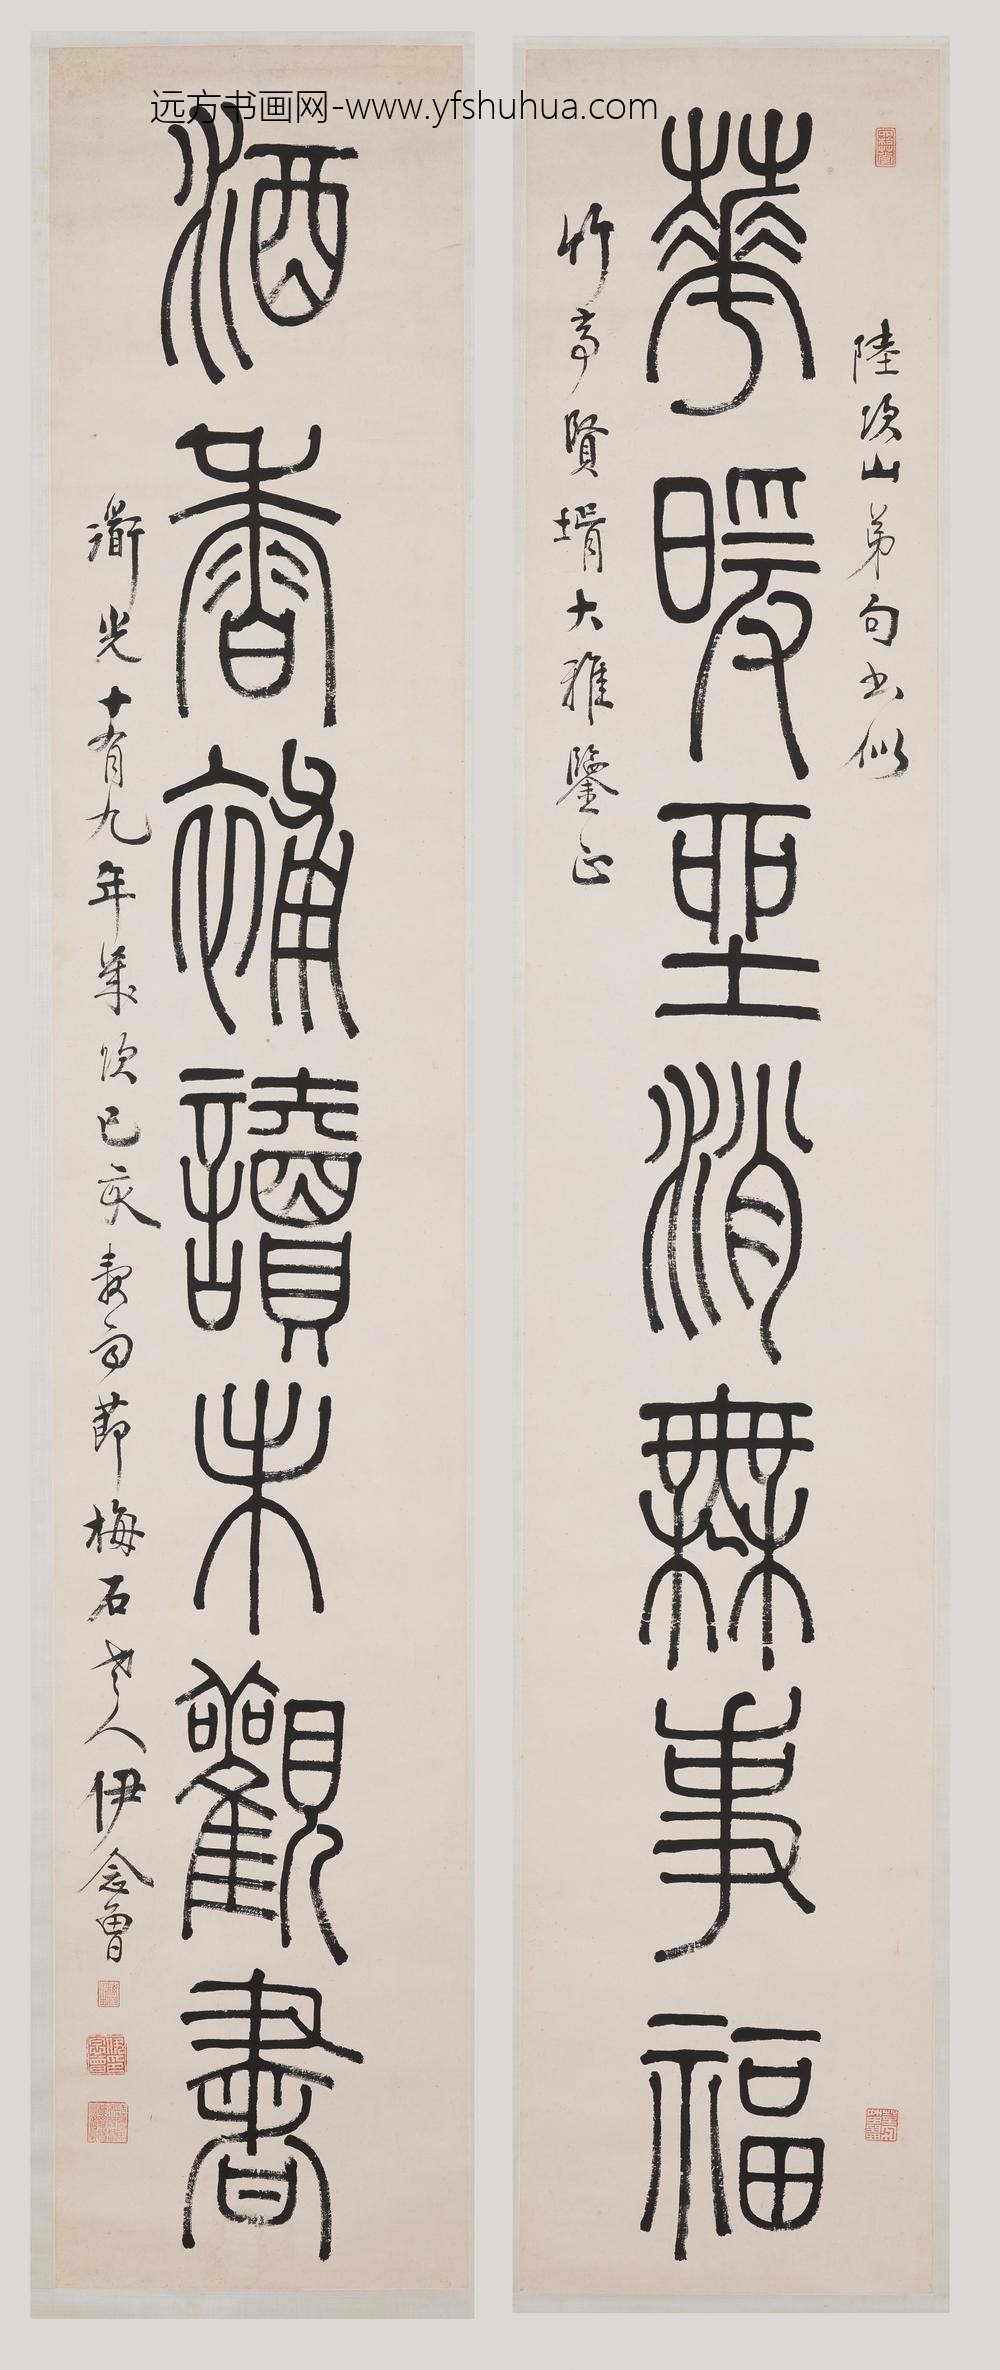 远方书画网-www.yfshuhua.com
陸次山弟句書似
華暖坐消無事福
竹亭賢壻大雅鑒正
酒香補讀未觀書
衟光十有九年歲次己亥穀雨節梅石老人伊念曾